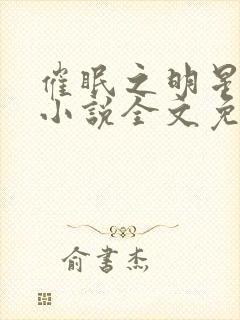 催眠之明星
小说全文免
俞书杰